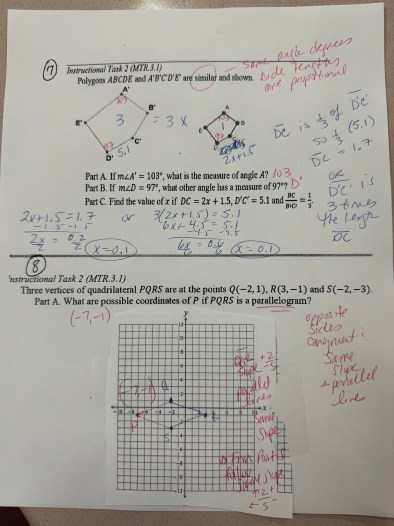 7
Instructional Task 2 (MTR.3.1)
Polygons ABCDE and A'B'C'D'E' are similar and shown.
same angle degrees
side lengths
are proportional
A'
103
B'
E'
3
= 3 x
C'
D'
97
5.1
A
B
E
1
2x+1.5
DC is 1/3 of D'C'
so 1/3 (5.1)
DC = 1.7
OR
D'C' is
3 times
the length
DC
Part A. If m∠A' = 103°, what is the measure of angle A? 103
Part B. If m∠D = 97°, what other angle has a measure of 97°? D'
Part C. Find the value of x if DC = 2x + 1.5, D'C' = 5.1 and BC/B'C' = 1/3.
2x+1.5 = 1.7 or 3(2x+1.5) = 5.1
-1.5 -1.5 6x + 4.5 = 5.1
-4.5 -4.5
2x/2 = 0.2/2 x=0.1 6x = 0.6 x=0.1
8
Instructional Task 2 (MTR.3.1)
Three vertices of quadrilateral PQRS are at the points Q(−2, 1), R(3, −1) and S(−2, −3).
Part A. What are possible coordinates of P if PQRS is a parallelogram?
(-7,-1)
opposite
sides
congruent
same
slope
parallel
lines
y
x
(-7,-1)
Q
P
S
slope
parallel
lines
same
slope
From Point S
same slope